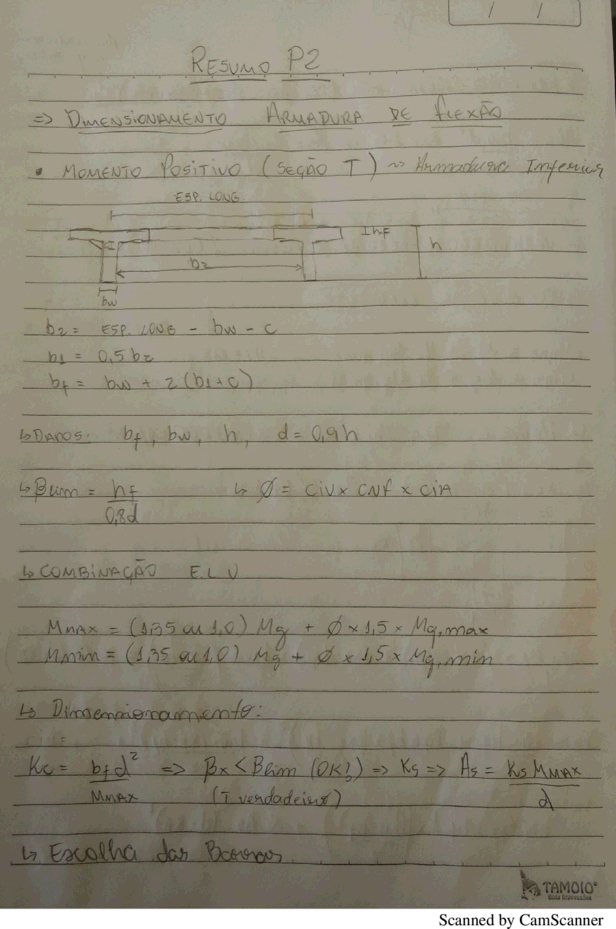 / /
RESUMO P2
=> DIMENSIONAMENTO ARMADURA DE FLEXÃO
• MOMENTO POSITIVO (SEÇÃO T) ~> Armadura Inferior
ESP. LONG.
hf
h
c
b2
bw
b2 = ESP. LONG - bw - c
b1 = 0,5 b2
bf = bw + 2 (b1+c)
↳ DADOS: bf, bw, h, d = 0,9h
↳ βlim = hf / 0,8d ↳ Ø = CIV x CNF x CIA
↳ COMBINAÇÃO E.L.U
MMAX = (1,35 ou 1,0) Mg + Ø x 1,5 x Mq,max
Mmin = (1,35 ou 1,0) Mg + Ø x 1,5 x Mq,min
↳ Dimensionamento:
Kc = bf d² / MMAX => βx < βlim (OK!) => Ks => As = Ks MMAX / d
(T verdadeira)
↳ Escolha das Barras.
TAMOIO
Scanned by CamScanner